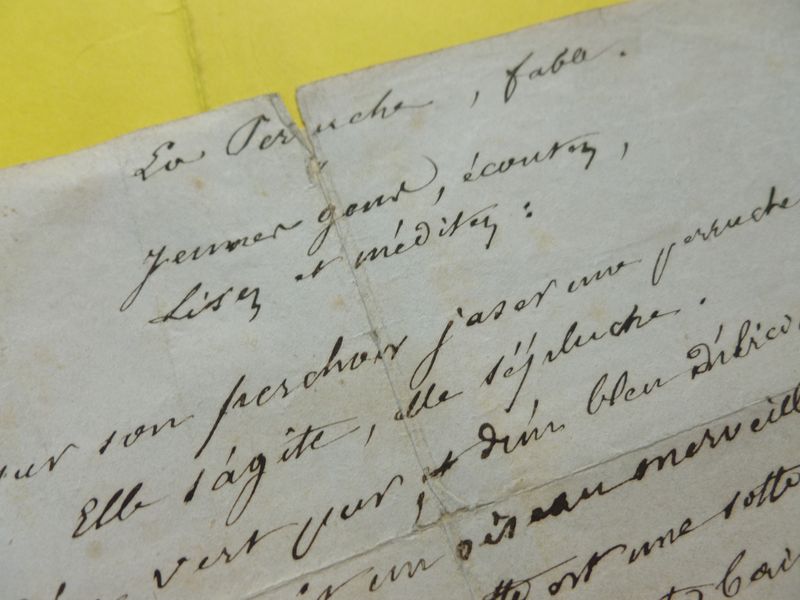 La Perruche, fable.
Jeunes gens, écoutez,
Lisez et méditez :
sur son perchoir jaser une perruche
Elle s'agite, elle s'épluche.
vert pur et d'un bleu
un oiseau
est une sotte